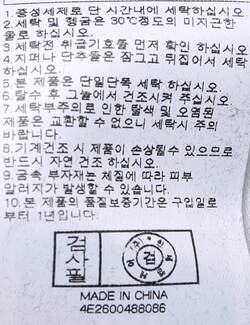 1.중성세제로 단 시간내에 세탁하십시오
2.세탁 및 헹굼은 30℃정도의 미지근한
물로 하십시오.
3.세탁전 취급기호를 먼저 확인 하십시오
4.지퍼나 단추들은 잠그고 뒤집어서 세탁
하십시오.
5.본 제품은 단일단독 세탁 하십시오.
6.탈수 후 그늘에서 건조시켜 주십시오.
7.세탁부주의로 인한 탈색 및 오염된
제품은 교환할 수 없으니 세탁시 주의
바랍니다.
8.기계건조 시 제품이 손상될수 있으므로
반드시 자연 건조 하십시오.
9.금속 부자재는 체질에 따라 피부
알러지가 발생할 수 있습니다.
10.본 제품의 품질보증기간은 구입일로
부터 1년입니다.
검사필
검
MADE IN CHINA
4E2600488086